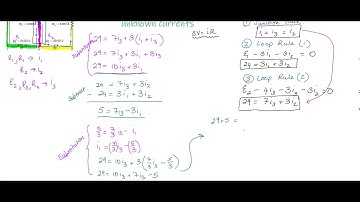 unknown currents
ΔV = iR
E₁, R₁ → i₁
R₂ → i₂
E₂, R₃, R₄ → i₃
Substitution
29 = 7i₃ + 3i₂
29 = 7i₃ + 3(i₁ + i₃)
29 = 7i₃ + 3i₁ + 3i₃
29 = 10i₃ + 3i₁
Subtraction
29 = 7i₃ + 3i₂
24 = 3i₁ + 3i₂
5 = 7i₃ - 3i₁
Substitution
5/3 = 7/3 i₃ - i₁
i₁ = 7/3 i₃ - 5/3
29 = 10i₃ + 3(7/3 i₃ - 5/3)
29 = 10i₃ + 7i₃ - 5
i₁ + i₃ = i₂
② Loop Rule (1)
- 3i₁ - 3i₂ = 0
24 = 3i₁ + 3i₂
③ Loop Rule (2)
E₂ - 4i₃ - 3i₃ - 3i₂ = 0
29 = 7i₃ + 3i₂
29+5 =